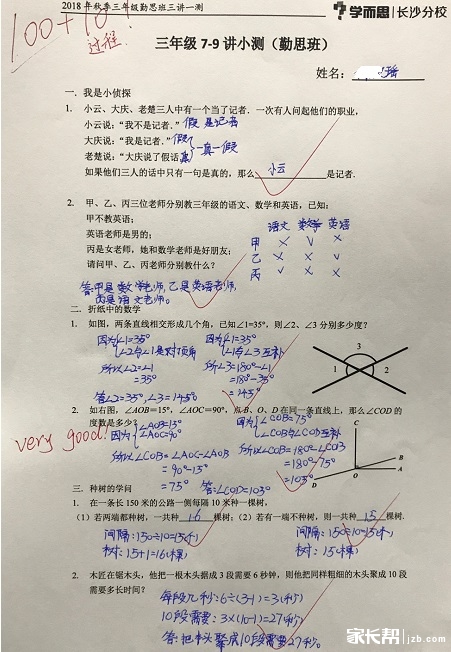 2018年秋季三年级勤思班三讲一测
学而思 长沙分校
100+10!
过程.
三年级 7-9 讲小测（勤思班）
姓名：瑶
一. 我是小侦探
1. 小云、大庆、老楚三人中有一个当了记者．一次有人问起他们的职业，
小云说：“我不是记者．” 假 是记者
大庆说：“我是记者．” 假
一真一假
老楚说：“大庆说了假话” 真
如果他们三人的话中只有一句是真的，那么 小云 是记者.
2. 甲、乙、丙三位老师分别教三年级的语文、数学和英语，已知：
甲不教英语；
英语老师是男的；
丙是女老师，她和数学老师是好朋友；
请问甲、乙、丙老师分别教什么？
语文 数学 英语
甲 × ∨ ×
乙 × × ∨
丙 ∨ × ×
答：甲是数学老师，乙是英语老师，
丙是语文老师。
二. 折纸中的数学
1. 如图，两条直线相交形成几个角，已知∠1=35°，则∠2、∠3 分别多少度？
因为 ∠1=35° 因为 ∠1=35°
∠2与∠1是对顶角 ∠1与∠3互补
所以∠2=∠1 所以∠3=180°-∠1
=35° =180°-35°
=145°
答∠2=35°，∠3=145°
3
1 2
2. 如右图，∠AOB=15°，∠AOC=90°，点 B、O、D 在同一条直线上，那么∠COD 的
度数是多少？
very good!
因为 ∠AOB=15° 因为 ∠COB=75°
∠AOC=90° ∠COB与∠COD互补
所以∠COB=∠AOC-∠AOB
=90°-15° =180°-75°
=75°
答：∠COD=103°
C
B
A
D O
三. 种树的学问
1. 在一条长 150 米的公路一侧每隔 10 米种一棵树，
（1）若两端都种树，一共种 16 棵树；（2）若有一端不种树，则一共种 15 棵树.
间隔：150÷10=15(个) 间隔：150÷10=15(个)
树：15+1=16(棵) 树：15(棵)
2. 木匠在锯木头，他把一根木头据成 3 段需要 6 秒钟，则他把同样粗细的木头聚成 10 段
需要多长时间？
每段几秒：6÷(3-1)=3(秒)
10段需要：3×(10-1)=27(秒)
答：把木头聚成10段需要27秒。
家长帮 jzb.com